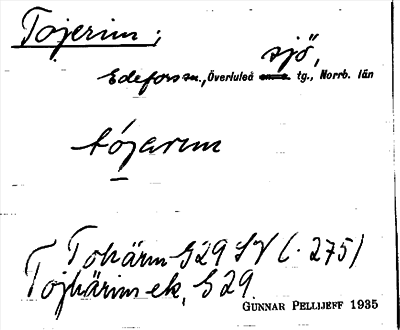 Tojerim;
sjö,
Edefors sn., Överluleå tg., Norrb. län
tójarım
Tohärm G29 SV (. 275)
Tojhärim ek, G29
GUNNAR PELLIJEFF 1935